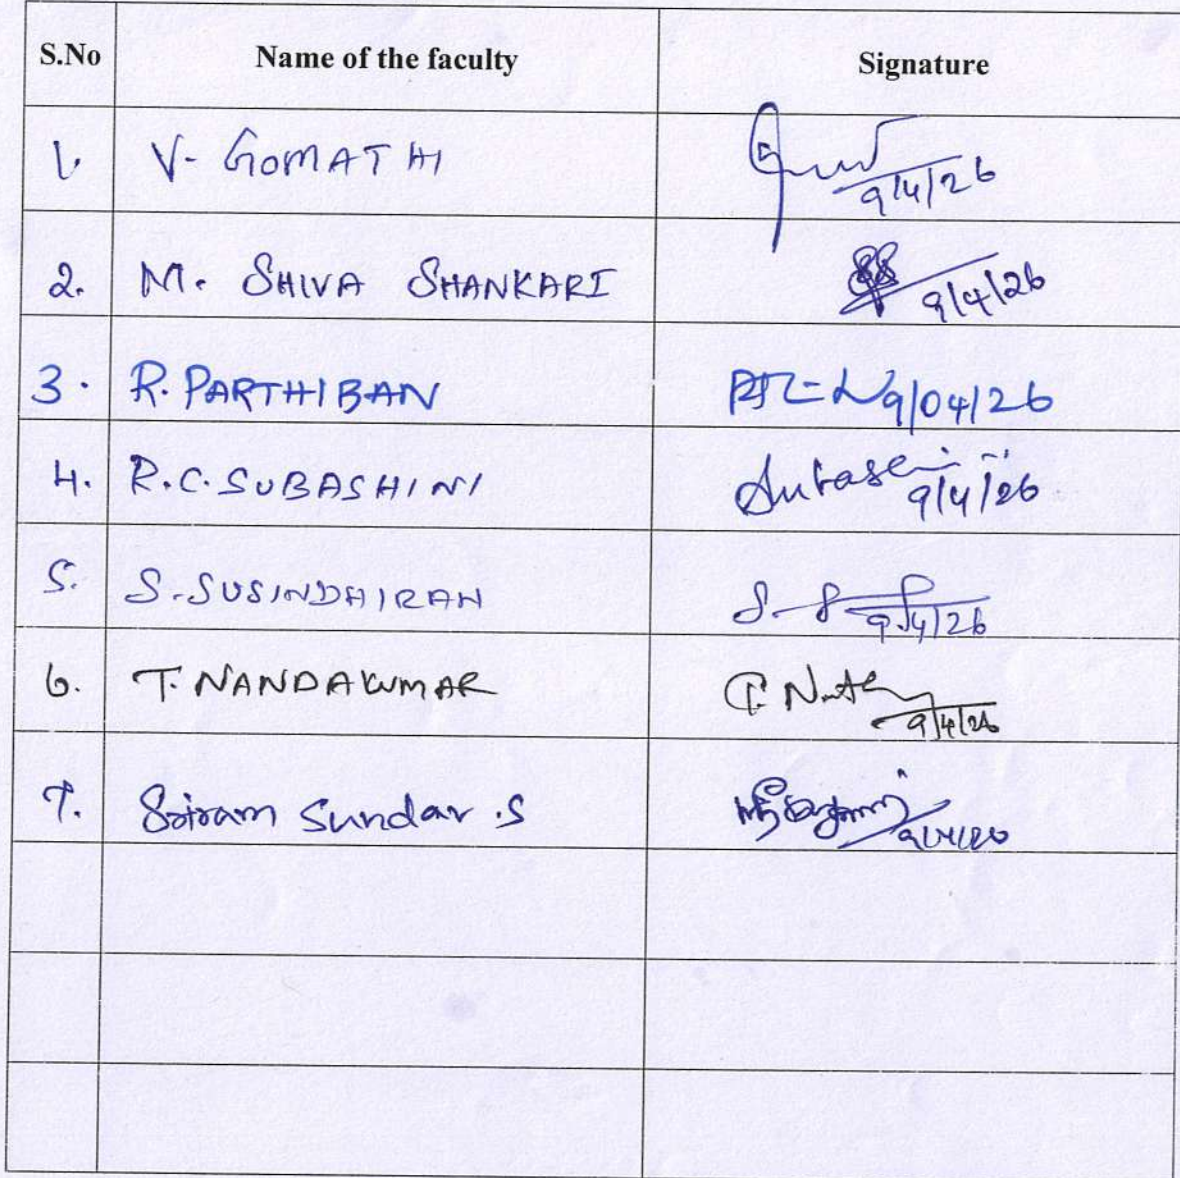 S.No Name of the faculty Signature
1. V. GOMATHI 9/4/26
2. M. SHIVA SHANKARI 9/4/26
3. R. PARTHIBAN 9/04/26
4. R.C. SUBASHINI 9/4/26
5. S. SUSINDHIRAN 9/4/26
6. T. NANDAKUMAR 9/4/26
7. Sriram Sundar .S